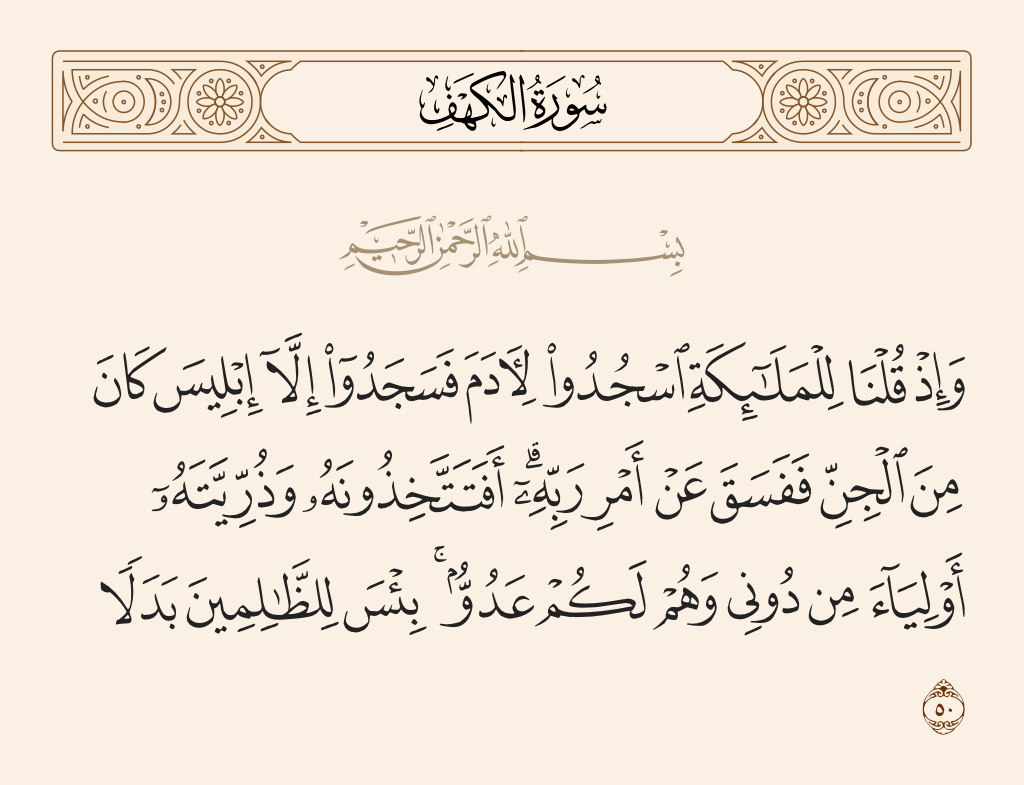 سُورَةُ الكَهۡفِ
بِسۡمِ ٱللَّهِ ٱلرَّحۡمَٰنِ ٱلرَّحِيمِ
وَإِذۡ قُلۡنَا لِلۡمَلَٰٓئِكَةِ ٱسۡجُدُواْ لِأٓدَمَ فَسَجَدُوٓاْ إِلَّآ إِبۡلِيسَ كَانَ
مِنَ ٱلۡجِنِّ فَفَسَقَ عَنۡ أَمۡرِ رَبِّهِۦٓۗ أَفَتَتَّخِذُونَهُۥ وَذُرِّيَّتَهُۥٓ
أَوۡلِيَآءَ مِن دُونِي وَهُمۡ لَكُمۡ عَدُوُّۢۚ بِئۡسَ لِلظَّٰلِمِينَ بَدَلٗا
٥٠